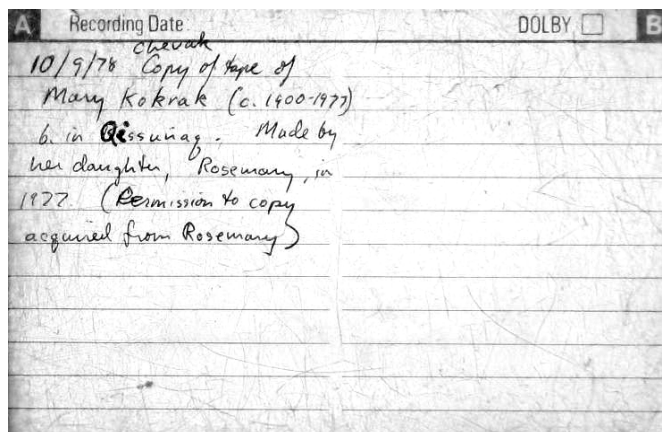 A Recording Date DOLBY B
Chevak
10/9/78 Copy of tape of
Mary Kokrak (c. 1900-1977)
b. in Qissunaq. Made by
her daughter, Rosemary, in
1977. (Permission to copy
acquired from Rosemary)